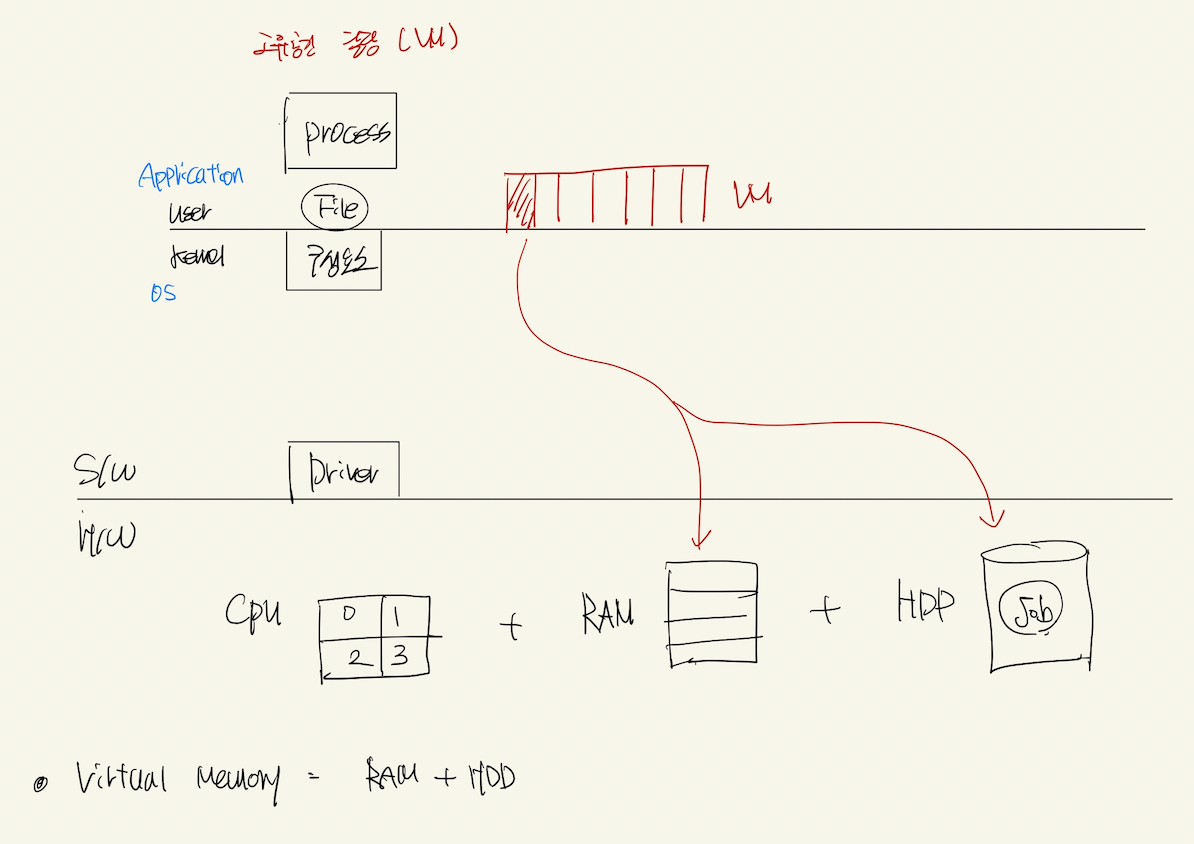 (VM)
process
Application
user
File
VM
kernel
구성요소
OS
S/W
Driver
H/W
CPU
0 1
2 3
+
RAM
+
HDD
Job
Virtual Memory = RAM + HDD